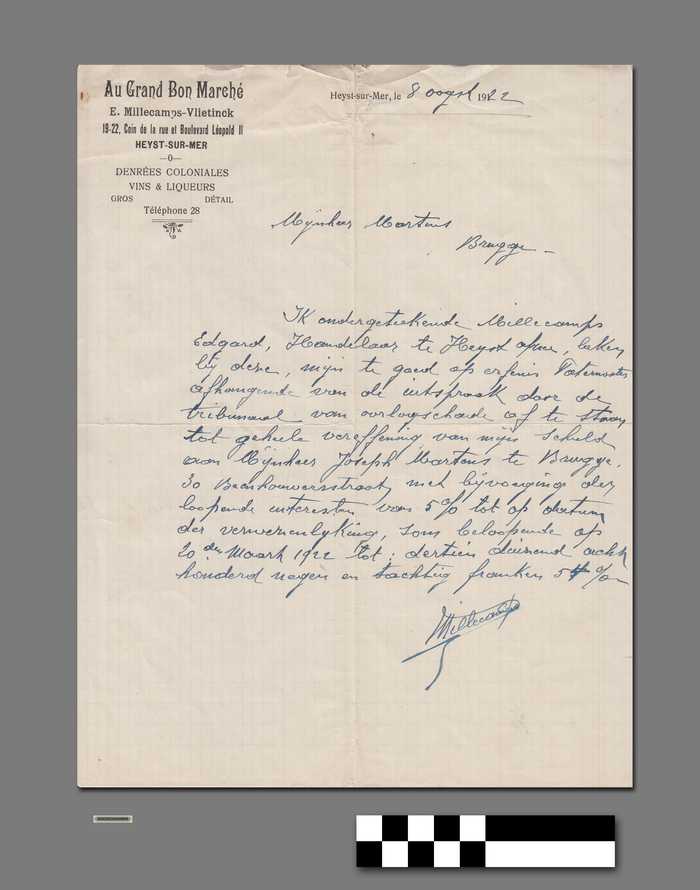 Au Grand Bon Marché
E. Millecamps-Vlietinck
19-22, Coin de la rue et Boulevard Léopold II
HEYST-SUR-MER
—0—
DENRÉES COLONIALES
VINS & LIQUEURS
GROS DÉTAIL
Téléphone 28
Heyst-sur-Mer, le 8 oogst 1922
Mijnheer Martens
Brugge -
Ik ondergeteekende Millecamps
Edgard, Handelaar te Heyst o/mer, beken
bij deze, mijn te goed op erfenis
afhangende van de uitspraak door de
tribunaal van oorlogschade af te staan
tot geheele vereffening van mijn schuld
aan Mijnheer Joseph Martens te Brugge,
30 Beenhouwersstraat, met bijvoeging der
loopende interesten van 5 % tot op datum
der verwezenlijking, som beloopende op
20 den Maart 1922 tot : dertien duizend acht
honderd negen en tachtig franken 54 %
Millecamps